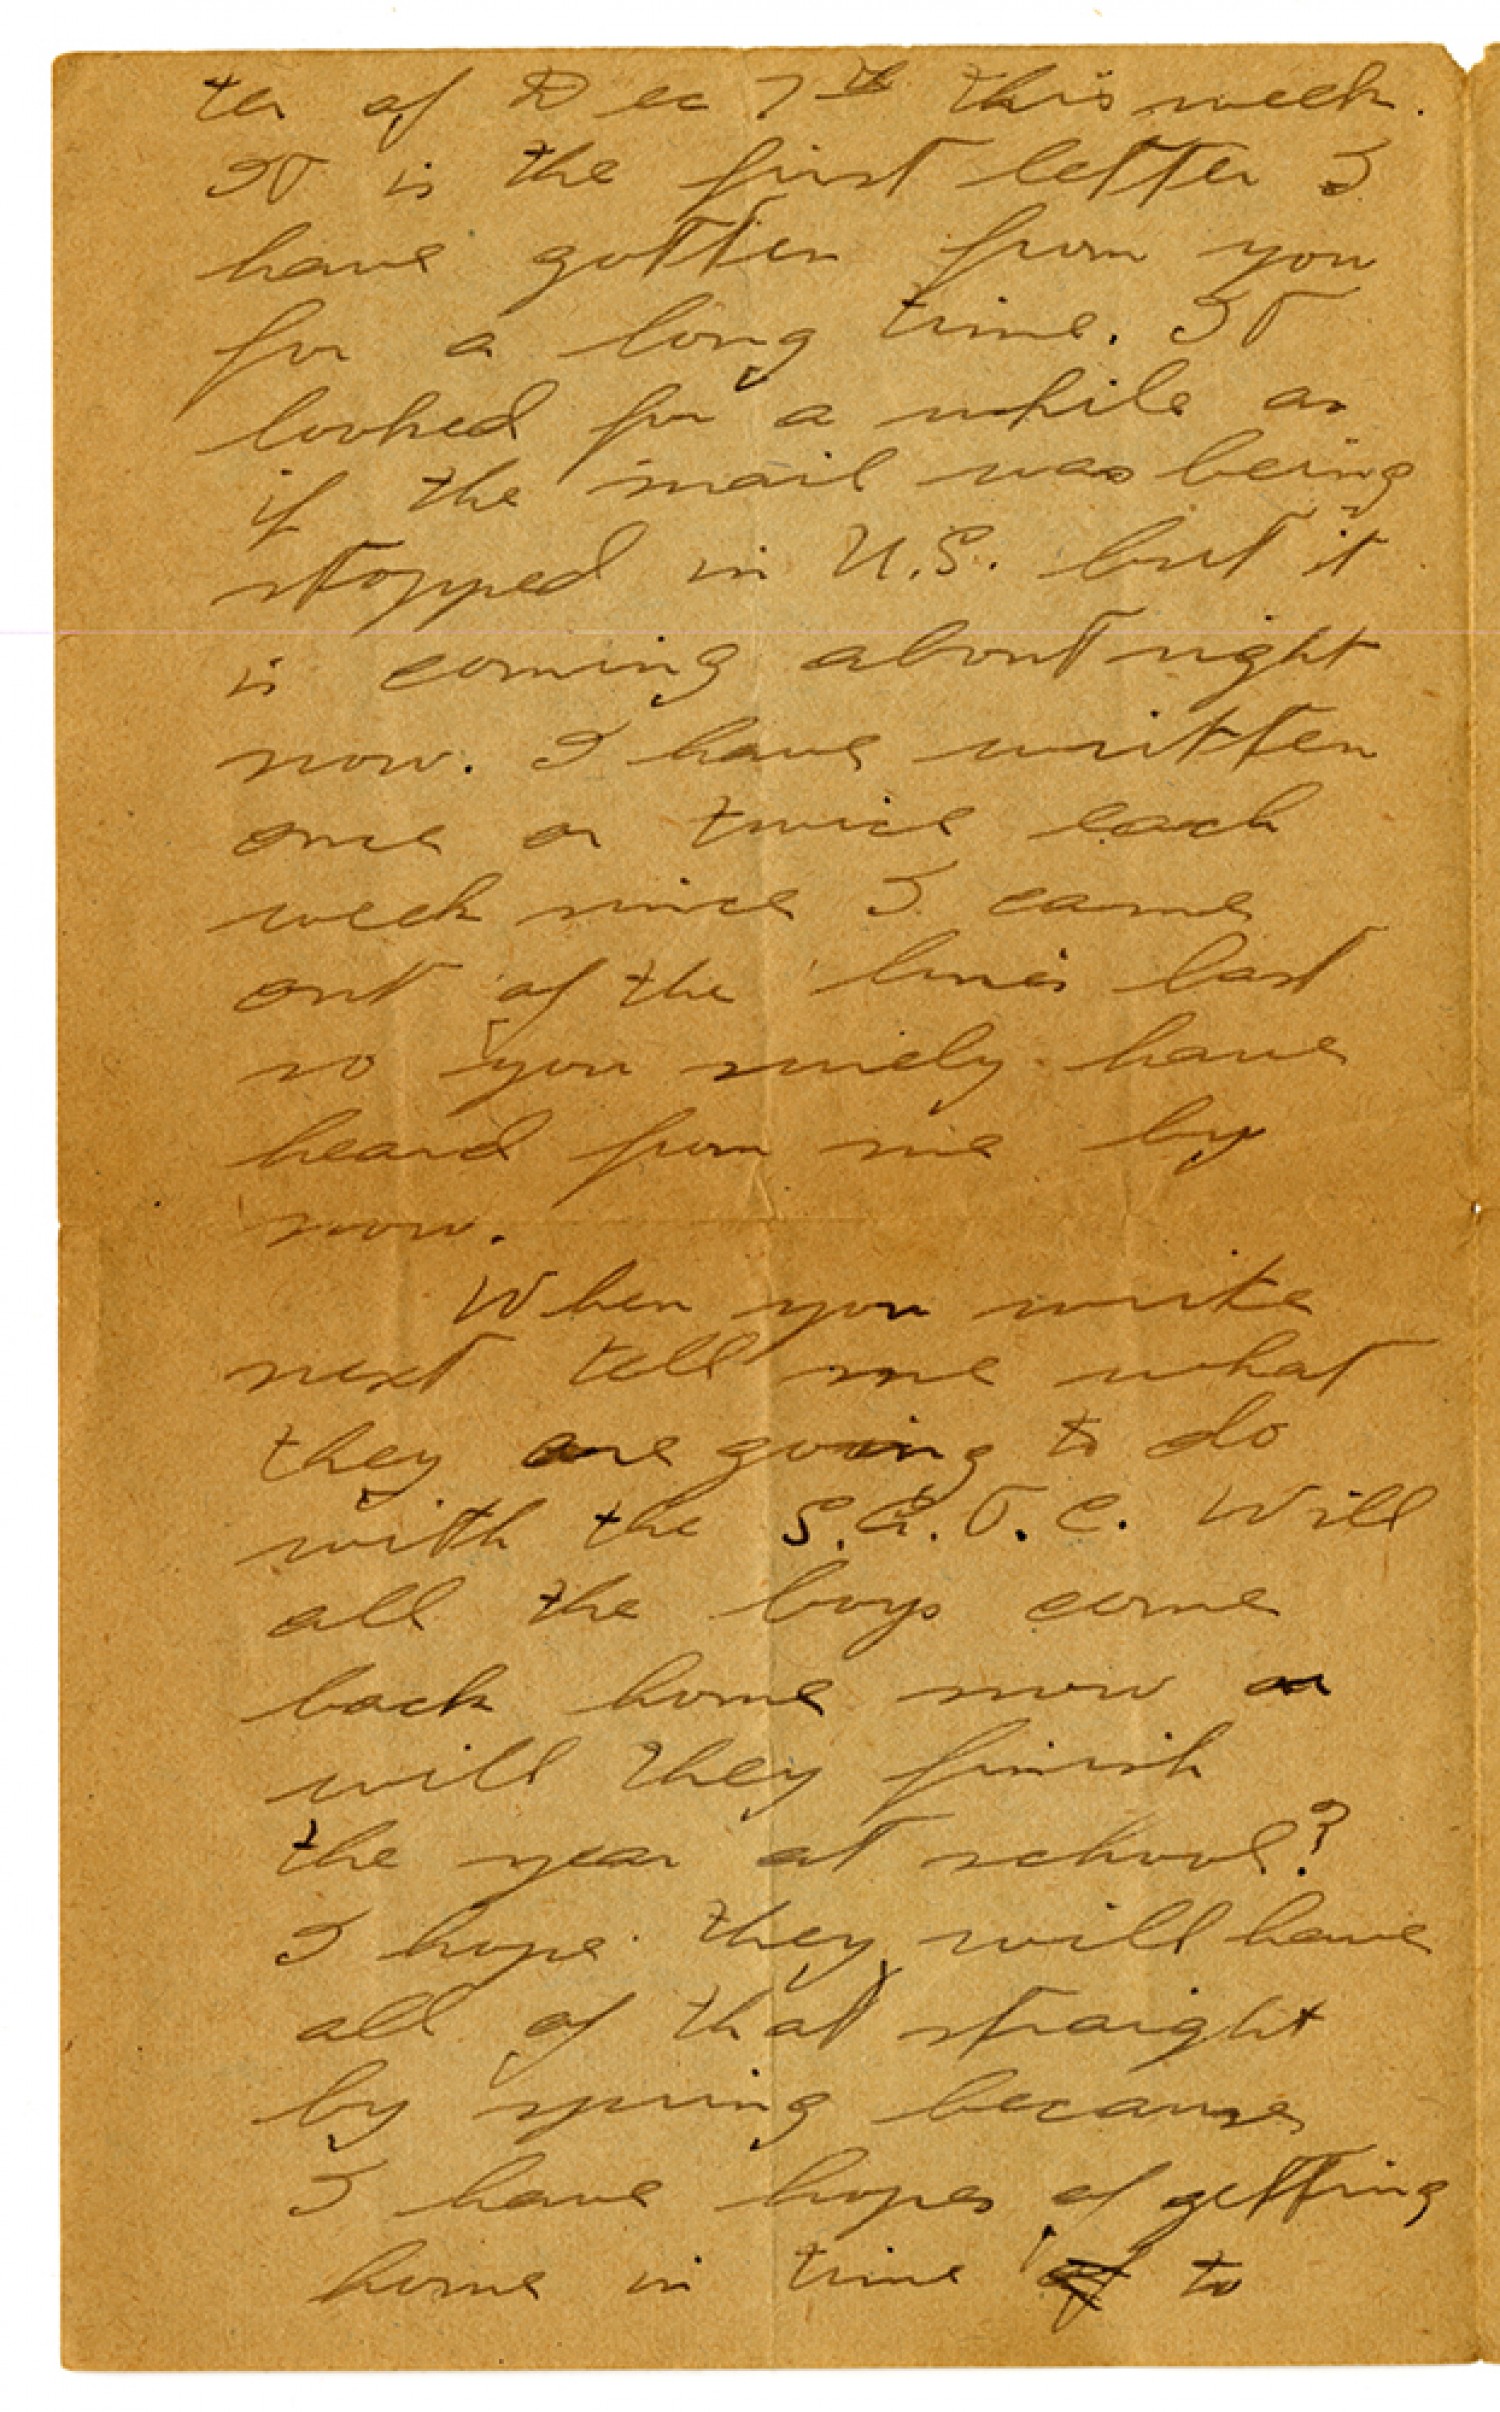 ter of Dec 7th this week.
It is the first letter I
have gotten from you
for a long time. It
looked for a while as
if the mail was being
stopped in U.S. but it
is coming about right
now. I have written
once or twice each
week since I came
out of the lines last
so you surely have
heard from me by
now.
When you write
next tell me what
they are going to do
with the S.A.T.C. Will
all the boys come
back home now or
will they finish
the year at school?
I hope they will have
all of that straight
by spring because
I have hopes of getting
home in time of to